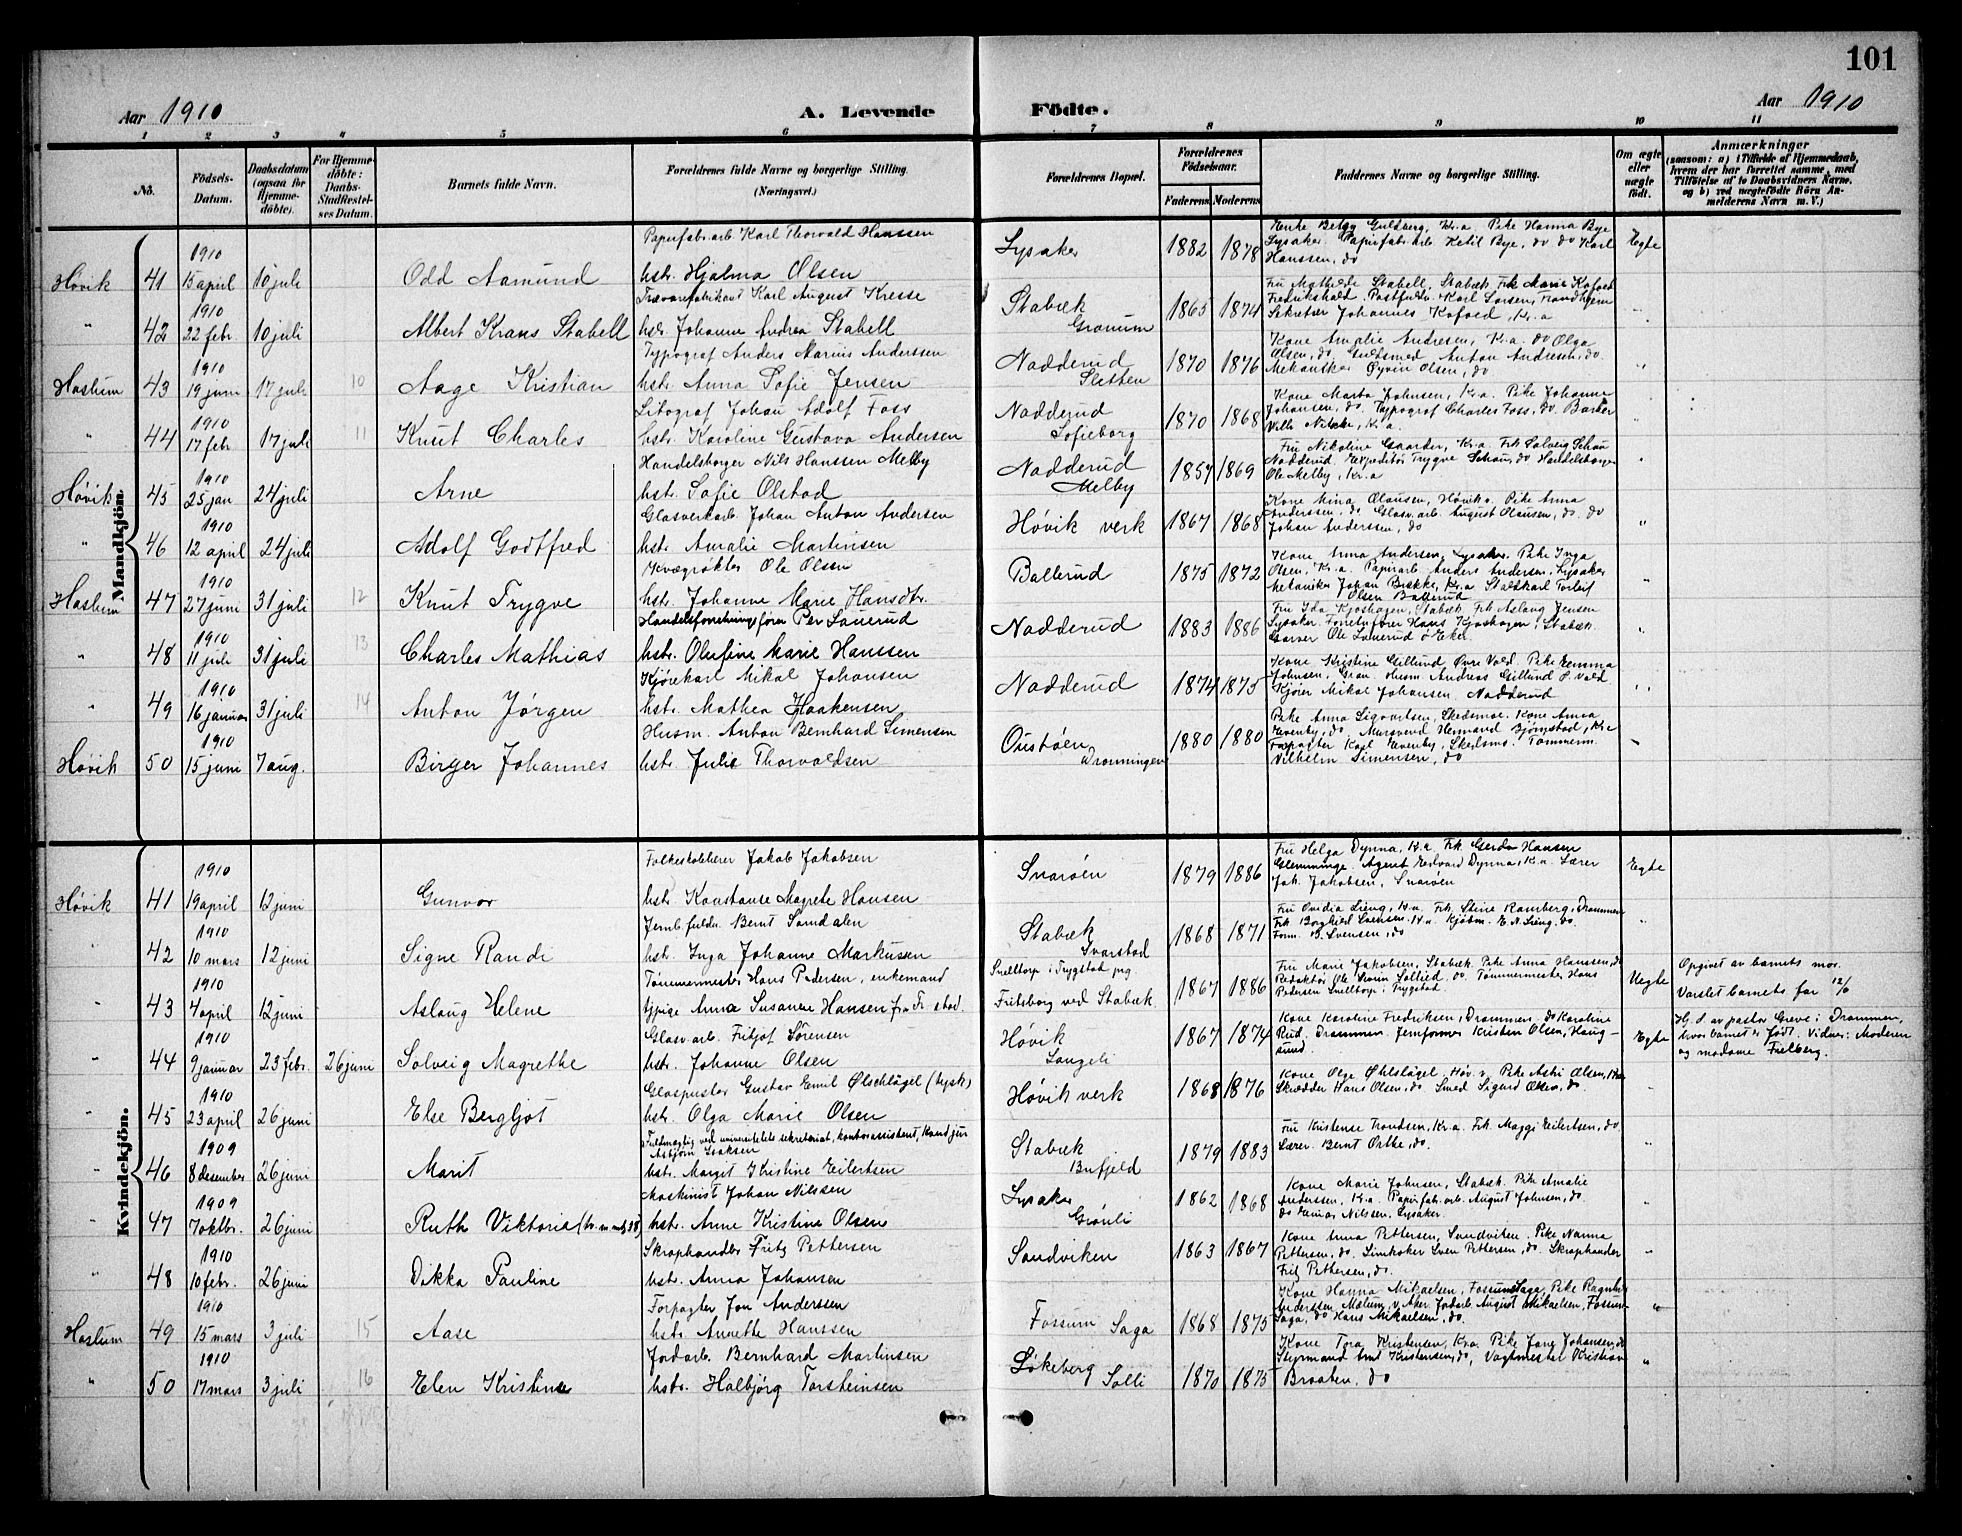 101
Aar 1910 A. Levende Födte. Aar 1910
1 2 3 4 5 6 7 8 9 10 11
No.
Födsels-Datum.
Daabsdatum (ogsaa for Hjemme-döbte).
For Hjemme-döbte: Daabs-Stadfæstel-ses Datum.
Barnets fulde Navn.
Forældrenes fulde Navne og borgerlige Stilling. (Næringsvei.)
Forældrenes Bopæl.
Forældrenes Födselsaar.
Faderens. Moderens.
Faddernes Navne og borgerlige Stilling.
Om ægte eller uægte födt.
Anmærkninger
(saasom: a) i Tilfælde af Hjemmedaab, hvem der har forrettet samme, med Tilföielse af to Daabsvidners Navne, og b) ved uægtefödte Börn Anmelderens Navn m. V.)
Mandkjön.
Papirfabr.arb. Karl Thorvald Hanssen
Høvik 41 1910 15 april 10 juli Odd Aamund hstr. Hjalma Olsen Lysaker 1882 1878 Papirfabr.arb. Ketil Bye, do do Karl Hanssen, do Egte
Trævarefabrikant Karl August Kresse
" 42 1910 22 febr. 10 juli Albert Krans Stabell hstr. Johanne Andrea Stabell Stabæk Granum 1865 1874 Fru Mathilde Stabell, Stabæk. Frk Marie Kofoed Fredrikshald, Postfuldm. Karl Larsen, Trondhjem Sekretær Johannes Kofoed, Kr.a "
Typograf Anders Marius Anderssen
Haslum 43 1910 19 juni 17 juli 10 Aage Kristian hstr. Anna Sofie Jensen Nadderud Sletten 1870 1876 Kone Amalie Andresen, Kr.a. do Olga Olsen, do. Guldsmed. Anton Andresen, do. Mekaniker Øyvin Olsen, do "
Litograf Johan Adolf Foss
" 44 1910 17 febr. 17 juli 11 Knut Charles hstr. Karoline Gustava Andersen Nadderud Sofieborg 1870 1868 Kone Marta Johnsen, Kr.a. Pike Johanne Johansen, do. Typograf Charles Foss, do. "
Handelsborger Nils Hanssen Melby
Høvik 45 1910 25 jan 24 juli Arne hstr. Sofie Olstad Nadderud Melby 1857 1869 Nadderud. Expeditør Trygve Schau, do Handelsborger Ole Melby, Kr.a "
Glasverkarb. Johan Anton Andersen
" 46 1910 12 april 24 juli Adolf Godtfred hstr. Amalie Martinsen Høvik verk 1867 1868 Kone Mina Olausen, Høvik v. Pike Anna Anderssen, do. Glasv.arb. August Olausen, do. do Johan Anderssen, do "
Kvægrøkter Ole Olsen
Haslum 47 1910 27 juni 31 juli 12 Knut Trygve hstr. Johanne Marie Hansdtr. Ballerud 1875 1872 Kone Anna Andersen, Lysaker. Pike Inga Olsen, Kr.a. Papirarb. Anders Andersen, Lysaker Mekaniker Johan Bekke, Kr.a Staldkarl Torleif Olsen Ballerud "
Handelsforretningsfører Per Lauerud
" 48 1910 11 juli 31 juli 13 Charles Mathias hstr. Olufine Marie Hanssen Nadderud 1883 1886 Fru Ida Kjoshagen, Stabæk. Frk Aslaug Jensen Lysaker. Hans Kjoshagen, Stabæk. Garver Ole Lauerud ø Eker. "
Kjørekarl Mikal Johansen
" 49 1910 16 januar 31 juli 14 Anton Jørgen hstr. Mathea Haakensen Nadderud 1874 1875 Kone Kristine Gillund, Øvre Vold. Pike Emma Johnsen, Gran. Husm Andreas Gillund Ø Vold. Kjører Mikal Johansen. Nadderud "
Husm. Anton Bernhard Simensen
Høvik 50 1910 15 juni 7 aug. Birger Johannes hstr. Julie Thorvaldsen Oustøen Dronningen 1880 1880 Pike Anna Sigvartsen, Skedsmo. Kone Anna Evenby, do. Mursvend Hermand Bjørnstad, Kr.a Forpagter Karl Evenby, Skedsmo. Tømmerm. Vilhelm Simensen, do "
Kvindekjön.
Folkeskolelærer Jakob Jakobsen
Høvik 41 1910 19 april 12 juni Gunvor hstr. Konstanse Magrete Hansen Snarøen 1879 1886 Fru Helga Dynna, Kr.a. Frk Gerda Hansen Glemminge. Agent Edvard Dynna, Kr.a. Lærer Joh. Jakobsen, Snarøen Egte
Jernb.fuldm. Bernt Sandalen
" 42 1910 10 mars 12 juni Signe Randi hstr. Inga Johanne Markussen Stabæk Svarstad 1868 1871 Fru Ovidia Lieng, Kr.a. Frk. Stine Ramberg, Drammen Frk Borghild Svensen. Kr.a. Kjøbm. E. N. Lieng, do. Form. B. Svensen, do "
Tømmermester Hans Pedersen, enkemand
" 43 1910 4 april 12 juni Aslaug Helene tjpige Anna Susanne Hansen fra Fr.stad. Snelltorp i Trygstad prg. Fritsborg ved Stabæk 1867 1886 Fru Marie Jakobsen, Stabæk. Pike Anna Hanssen, do Redaktør Ole Svein Sollied. do. Tømmermester Hans Pedersen Snelltorp i Trygstad. Uegte Opgivet av barnets mor. Varslet barnets far 12/6
Glasv.arb. Fritjof Sørensen
" 44 1910 9 januar 23 febr. 26 juni Solveig Magrethe hstr. Johanne Olsen Høvik Langeli 1867 1874 Kone Karoline Fredriksen, Drammen. do Karoline Rud. Drammen. Jernformer Kristen Olsen, Haugsund. Egte H. d. av pastor Greve i Drammen, hvor barnet er født. Vidner: Moderen og madame Fielberg.
Glaspuster Gustav Emil Ølschlägel (tysk)
" 45 1910 23 april 26 juni Else Bergljot hstr. Olga Marie Olsen Høvik verk 1868 1876 Kone Olga Øhlslägel, Høv. v. Pike Astri Olsen, Skrædder Hans Olsen, do. Smed Sigurd Olsen, do. "
Fuldmægtig ved universitetets sekretariat, kontorassistent, Kand jur Asbjørn Isaksen
" 46 1909 8 desember 26 juni Marit hstr. Marget Kristine Eilertsen Stabæk Bufjeld 1879 1883 Fru Kristense Trondsen, Kr.a. Frk. Maggi Eilertsen, do Lærer. Bernt Ortke, do. "
Maskinist Johan Nilssen
" 47 1909 7 oktbr. 26 juni Ruth Viktoria hstr. Anne Kristine Olsen Lysaker Grønli 1862 1868 Kone Marie Johnsen, Stabæk. Pike Amalie Anderssen, Kr.a. Papirfabr.arb. August Johnsen, do. do Einar Nilsen, Lysaker. "
Skraphandler Fritz Pettersen
" 48 1910 10 febr. 26 juni Dikka Pauline hstr. Anna Johansen Sandviken 1863 1867 Kone Anna Pettersen, Sandviken. Pike Nanna Pettersen, do. Limkoker Sven Pettersen, do. Skraphandler Fritz Pettersen, do. "
Forpagter Jon Anderssen
Haslum 49 1910 15 mars 3 juli 15 Aase hstr. Annette Hanssen Fossum Saga 1868 1875 Kone Hanna Mikaelsen, Fossum Saga, Pike Ragnhild Anderssen, Mælum, v. Aker. Jordarb. August Mikaelsen, Fossum Saga, do Hans Mikaelsen, do. "
Jordarb. Bernhard Martinsen
" 50 1910 17 mars 3 juli 16 Elen Kristine hstr. Halbjørg Torsteinsen Løkeberg Solli 1870 1875 Kone Tora Kristensen, Kr.a. Pike Jany Johansen, do Styrmand Kristensen, do, Vagtmester Kristian Braaten, do "